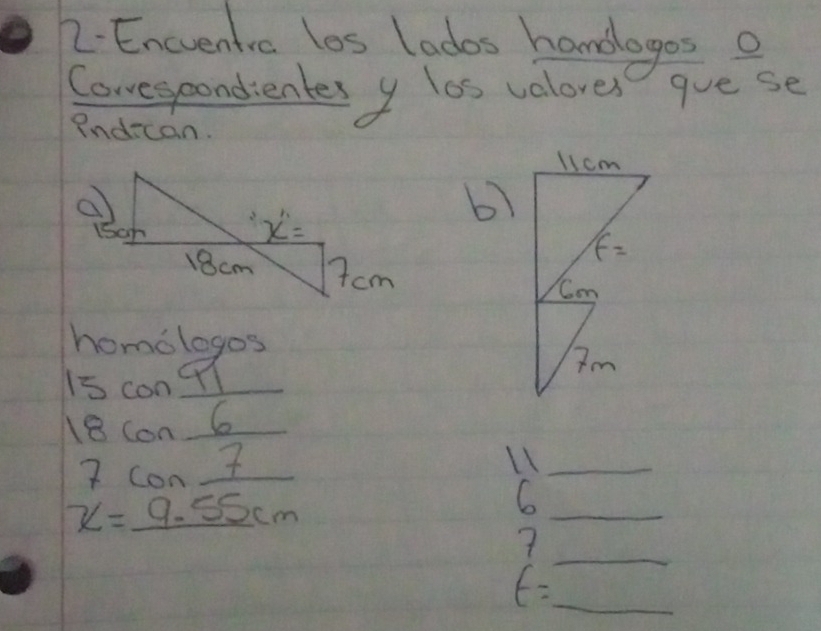 2-Encuentra los lados homólogos o
Correspondientes y los valores que se
indican.
a)
15cm
"x"=
18cm
7cm
b)
11cm
f=
6m
7m
homólogos
15 con 11
18 con 6
7 con 7
x= 9.55cm
11
6
7
f=